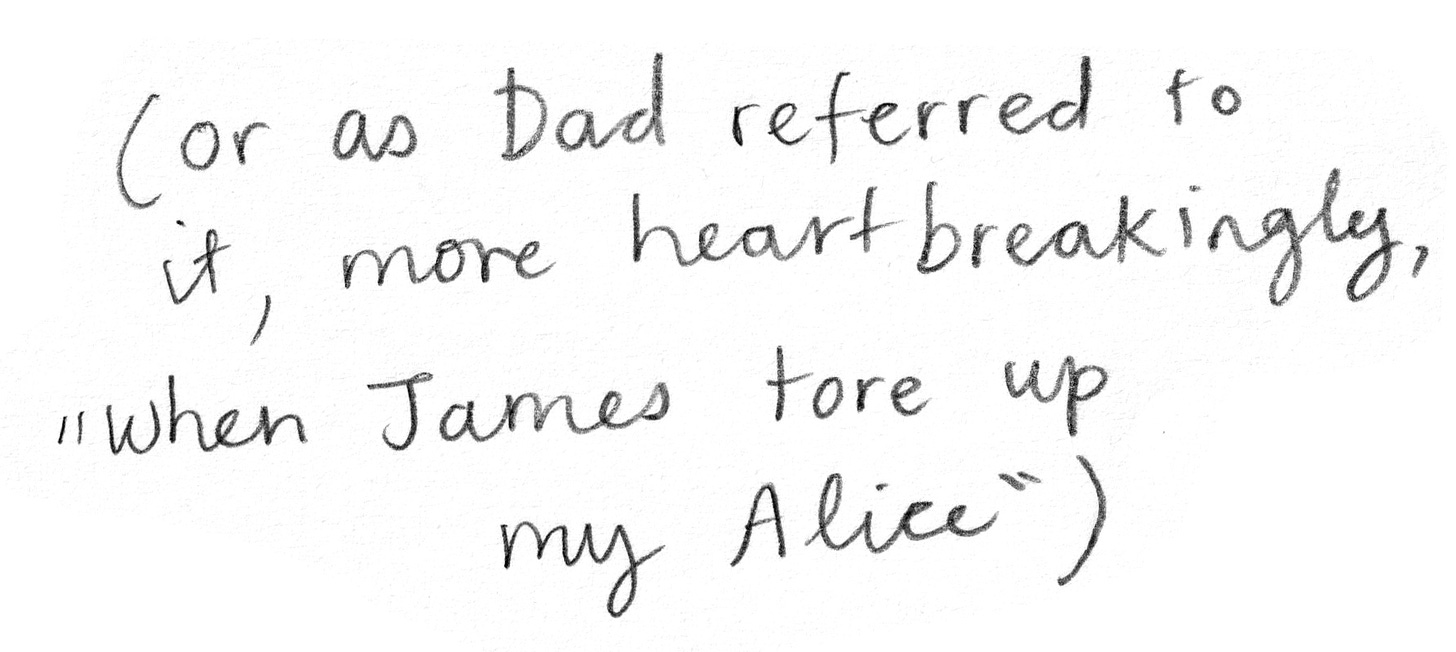 (or as Dad referred to
it, more heartbreakingly,
"when James tore up
my Alice")